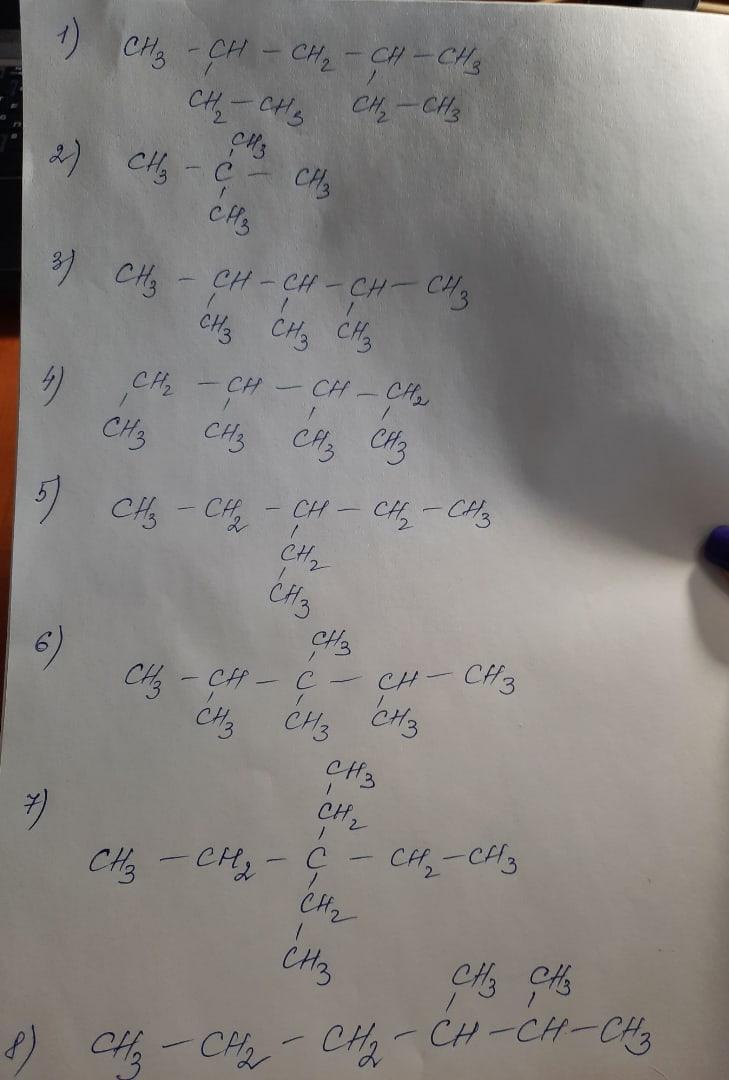 1) CH₃ - CH - CH₂ - CH - CH₃
CH₂ - CH₃ CH₂ - CH₃
CH₃
2) CH₃ - C - CH₃
CH₃
3) CH₃ - CH - CH - CH - CH₃
CH₃ CH₃ CH₃
4) CH₂ - CH - CH - CH₂
CH₃ CH₃ CH₃ CH₃
5) CH₃ - CH₂ - CH - CH₂ - CH₃
CH₂
CH₃
6)
CH₃
CH₃ - CH - C - CH - CH₃
CH₃ CH₃ CH₃
CH₃
7)
CH₂
CH₃ - CH₂ - C - CH₂ - CH₃
CH₂
CH₃
CH₃ CH₃
8) CH₃ - CH₂ - CH₂ - CH - CH - CH₃